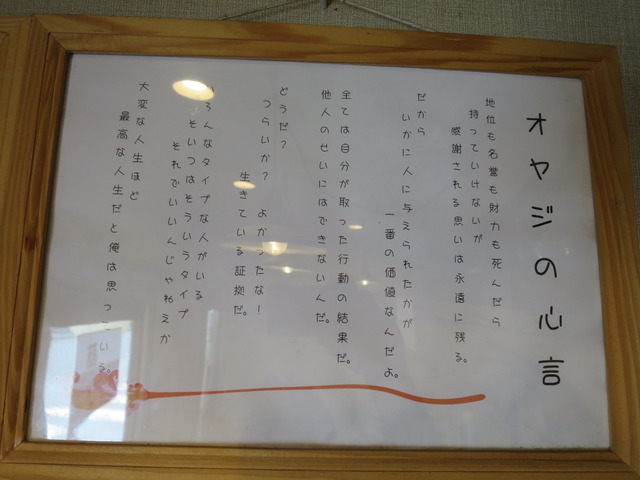 オヤジの心言
地位も名誉も財力も死んだら
持っていけないが
感謝される思いは永遠に残る。
だから
いかに人に与えられたかが
一番の価値なんだよ。
全ては自分が取った行動の結果だ。
他人のせいにはできないんだ。
どうだ?
つらいか? よかったな!
生きている証拠だ。
いろんなタイプな人がいる
そいつはそういうタイプ
それでいいんじゃねえか
大変な人生ほど
最高な人生だと俺は思っている。